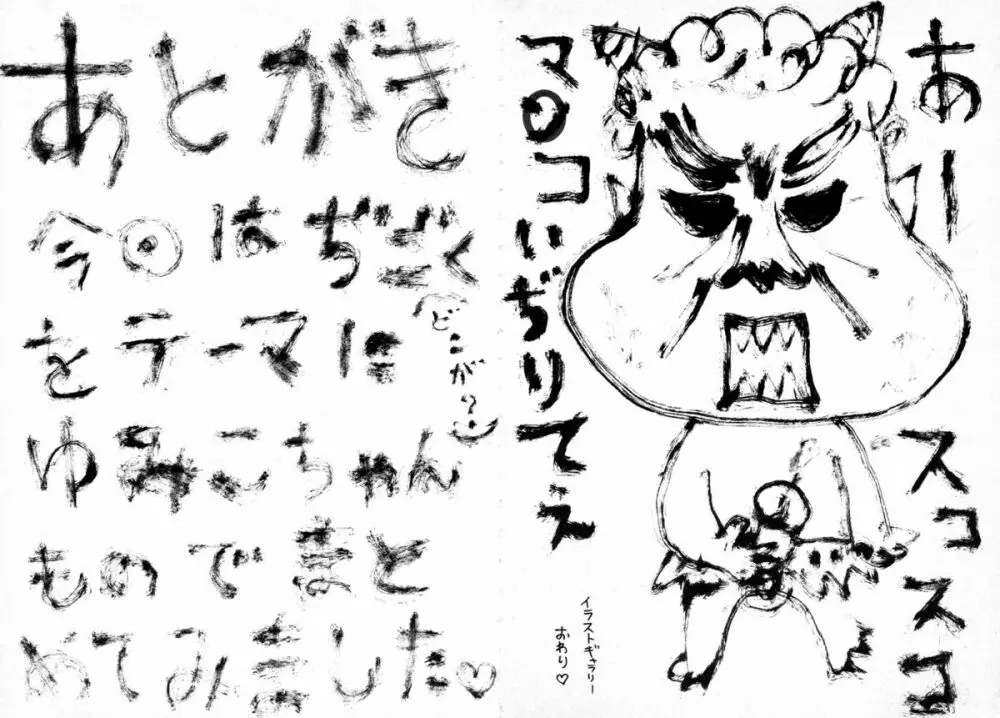 あとがき
今回はぢごく
をテーマに
(どこが？)
ゆみこちゃん
ものでまと
めてみました♡
あー
マ○コいぢりてえ
スコスコ
イラストギャラリー
おわり♡